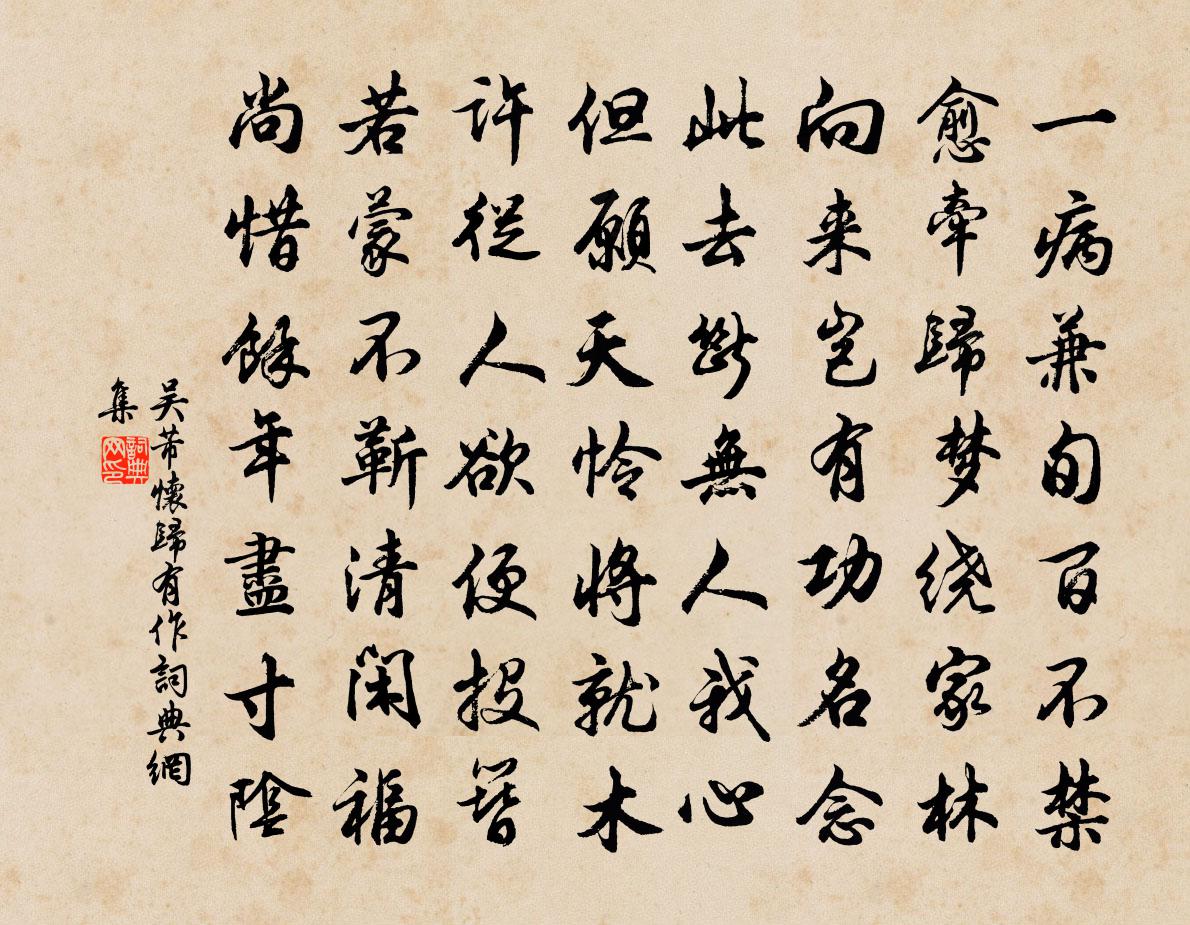 一病兼旬百不禁
愈牵歸梦绕家林
向来岂有功名念
此去断無人我心
但願天怜将就木
許從人欲便投簪
若蒙不靳清闲福
尚惜餘年盡寸陰
吴芾懷歸有作詞典網
集
詞典網印